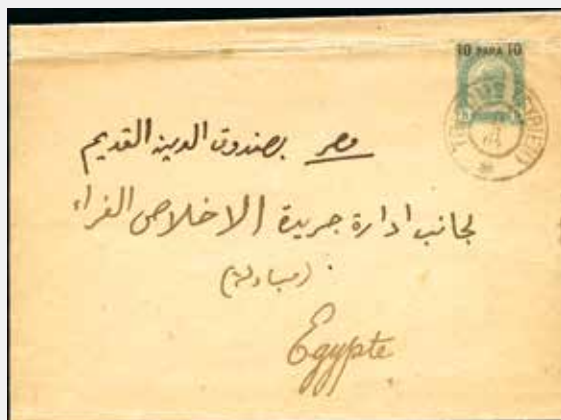 10 PARA 10
مصر بصندوق الدين القديم
لجانب ادارة جريدة الاخلاص الغراء
(مبادلة)
Egypte